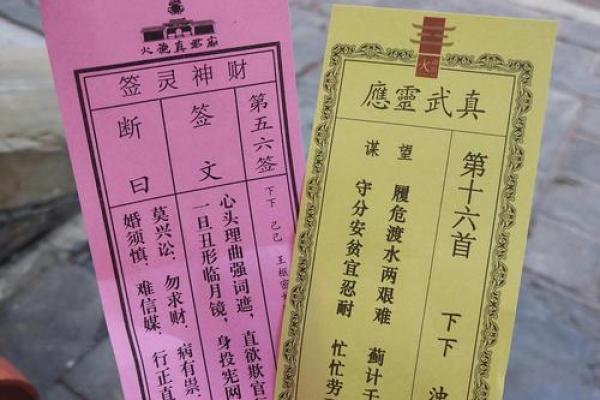 火德真君廟
财神灵签
第五六签
下下 己己 王枢密
签文
心头理曲强词遮，直欲欺官
一旦丑形临月镜，身投宪网
断曰
莫兴讼，勿求财，病有祟，
婚须慎，难信媒，行正直
火
真武靈應
第十六首
下下
望 履危渡水两艰难 蓟计于
谋 守分安贫宜忍耐 忙忙劳